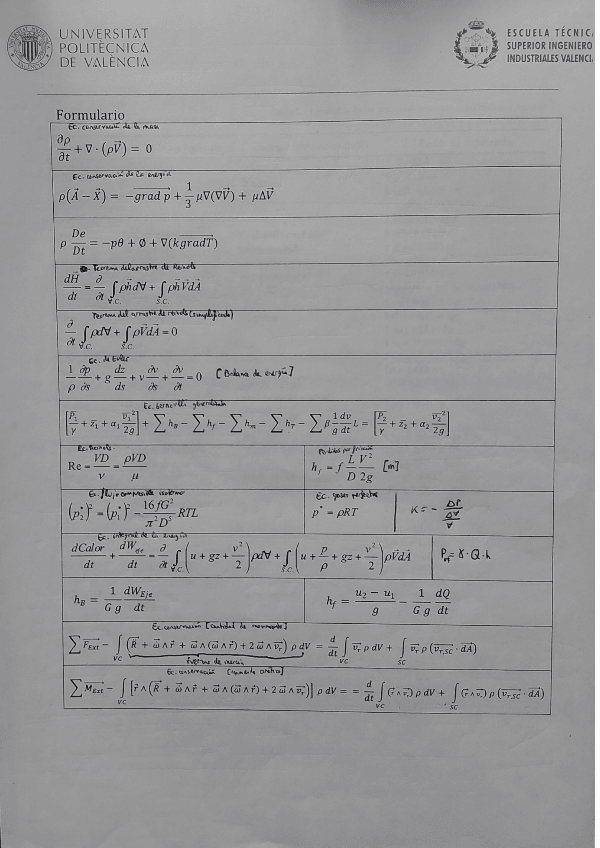 UNIVERSITAT
POLITÈCNICA
DE VALÈNCIA
ESCUELA TÉCNIC
SUPERIOR INGENIERO
INDUSTRIALES VALENCI
Formulario
Ec. conservación de la masa
∂ρ/∂t + ∇·(ρV⃗) = 0
Ec. conservación de la energía
ρ(A⃗ − X⃗) = −grad p + 1/3 μ∇(∇V⃗) + μΔV⃗
ρ De/Dt = −pθ + Ø + ∇(k gradT)
Teorema del arrastre de Reinols
dH⃗/dt = ∂/∂t ∫V.C. ρh⃗d∀ + ∫S.C. ρh⃗V⃗dA⃗
Teorema del arrastre de reinols (simplificado)
∂/∂t ∫V.C. ρd∀ + ∫S.C. ρV⃗dA⃗ = 0
Ec. de Euler
1/ρ ∂p/∂s + g dz/ds + v ∂v/∂s + ∂v/∂t = 0 [Balance de energía]
Ec. bernoulli generalizada
[P₁/γ + z₁ + α₁ v₁²/2g] + ∑h_B − ∑h_f − ∑h_m − ∑h_T − ∑β 1/g dv/dt L = [P₂/γ + z₂ + α₂ v₂²/2g]
Ec. Reinols
Re = VD/ν = ρVD/μ
Perdidas por fricción
h_f = f L/D V²/2g [m]
Ec. flujo compresible isotermo
(p₂*)² = (p₁*)² − 16fG²/π²D⁵ RTL
Ec. gases perfectos
p* = ρRT
K = − ΔP / (Δ∀/∀)
Ec. integral de la energía
dCalor/dt + dW_eje/dt = ∂/∂t ∫V.C. (u + gz + v²/2) ρd∀ + ∫S.C. (u + p/ρ + gz + v²/2) ρV⃗dA⃗
h_B = 1/(G g) dW_Eje/dt
h_f = (u₂ − u₁)/g − 1/(G g) dQ/dt
Ec. conservación [cantidad de movimiento]
∑F_Ext − ∫VC (R̈ + ω̇ ∧ r⃗ + ω⃗ ∧ (ω⃗ ∧ r⃗) + 2 ω⃗ ∧ v_r) ρ dV = d/dt ∫VC v_r ρ dV + ∫SC v_r ρ (v_r,SC · dA)
Fuerzas de inercia
∑M_Ext − ∫VC [r⃗ ∧ (R̈ + ω̇ ∧ r⃗ + ω⃗ ∧ (ω⃗ ∧ r⃗) + 2 ω⃗ ∧ v_r)] ρ dV = = d/dt ∫VC (r⃗ ∧ v_r) ρ dV + ∫SC (r⃗ ∧ v_r) ρ (v_r,SC · dA)